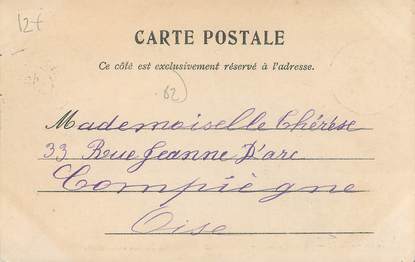 12€
CARTE POSTALE
Ce côté est exclusivement réservé à l'adresse.
62
Mademoiselle Thérèse
33 Rue Jeanne D'arc
Compiègne
Oise